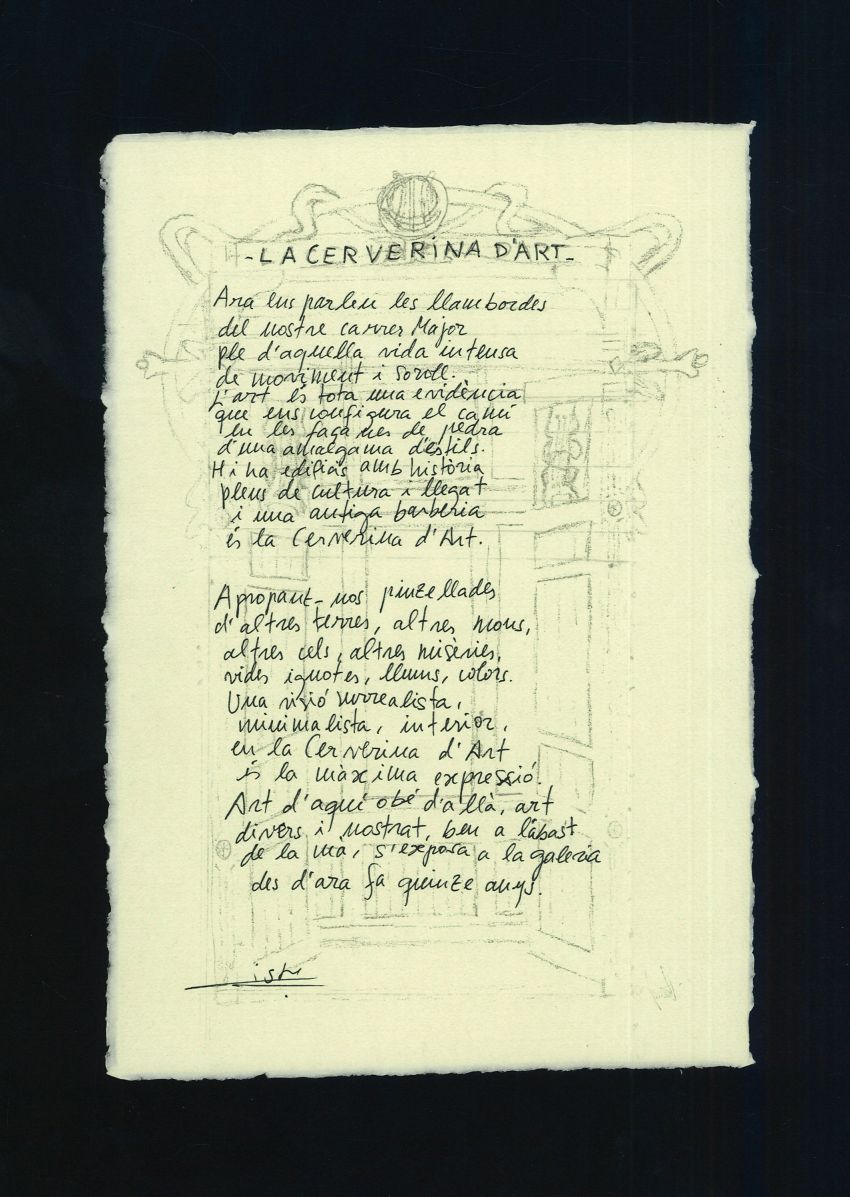 -LA CERVERINA D'ART-
Ara ens parlen les llambordes
del nostre carrer Major
ple d'aquella vida intensa
de moviment i soroll.
L'art és tota una evidència
que ens configura el camí
en les façanes de pedra
d'una amalgama d'estils.
Hi ha edificis amb història
plens de cultura i llegat
i una antiga barberia
és la Cerverina d'Art.
Apropant-nos pinzellades
d'altres terres, altres mons,
altres cels, altres misèries,
vides ignotes, llums, colors.
Una visió surrealista,
minimalista, interior,
en la Cerverina d'Art
és la màxima expressió.
Art d'aquí obé d'allà, art
divers i nostrat, ben a l'abast
de la mà, s'exposa a la galeria
des d'ara fa quinze anys.